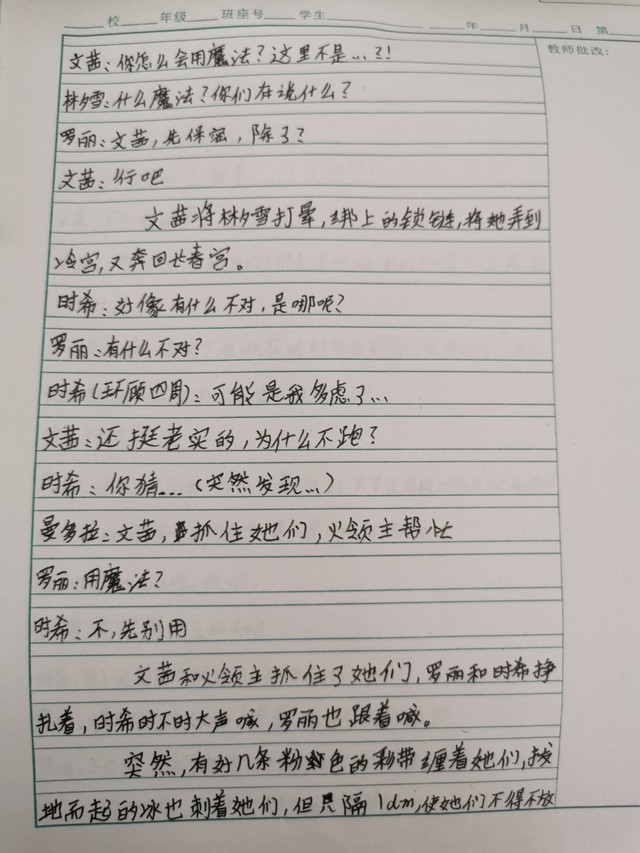 校 年级 班座号 学生 年 月 日 第
教师批改:
文茜:你怎么会用魔法?这里不是…?!
林夕雪:什么魔法?你们在说什么?
罗丽:文茜,先保密,除了?
文茜:行吧
文茜将林夕雪打晕,绑上的锁链,将她弄到
冷宫,又奔回长春宫。
时希:好像有什么不对,是哪呢?
罗丽:有什么不对?
时希(环顾四周):可能是我多虑了…
文茜:还挺老实的,为什么不跑?
时希:你猜…(突然发现…)
曼多拉:文茜,抓住她们,火领主帮忙
罗丽:用魔法?
时希:不,先别用
文茜和火领主抓住了她们,罗丽和时希挣
扎着,时希时不时大声喊,罗丽也跟着喊。
突然,有好几条粉色的彩带缠着她们,拔
地而起的冰也刺着她们,但只隔1dm,使她们不得不放